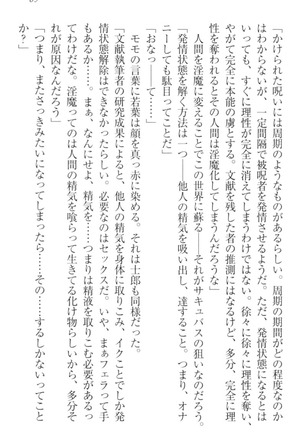 「かけられた呪いには周期のようなものがあるらしい。周期の期間がどの程度なのかは
わからないが、一定間隔で被呪者を発情させるようだ。ただ、発情状態になるとは
いっても、すぐに理性が完全に消えてしまうわけではない。徐々に徐々に理性を奪い、
やがて完全に本能の虜とする。文献を残した者の推測にはなるけど、多分、完全に理
性を奪われるとその人間は淫魔化してしまうんだろうな」
　人間を淫魔に変えることでこの世界に蘇る――それがサキュバスの狙いなのだろう。
「発情状態を解く方法は一つ――他人の精気を吸収し、達すること。つまり、オナ
ニーしても駄目ってことだ」
「おなっ――て……」
　モモの言葉に若葉は顔を真っ赤に染める。それは士郎も同様だった。
「文献執筆者の研究成果によると、他人の精気を身体に取りこみ、イクことでしか発
情状態解除はできなかったらしい。必要なのはセックスだ。いや、まぁフェラって手
もあるか……。まぁ、なんにせよ、精気を――つまりは精液を取りこむ必要があるっ
てわけだな。淫魔ってのは人間の精気を喰らって生きてる化け物らしいから、多分そ
れが原因なんだろう」
「つまり、またさっきみたいになってしまったら……その……するしかないってこと
か？」